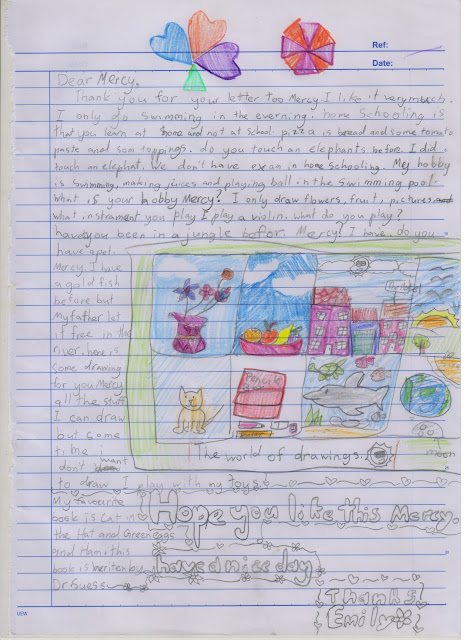 Ref:
Date:
Dear Mercy,
Thank you for your letter too Mercy. I like it very much.
I only do swimming in the everning. home schooling is
that you learn at home and not at school pizza is bread and some tomato
paste and som toppings. do you touch an elephants before. I did
touch an elephant. We don't have exam in home schooling. My hobby
is swimming, making juices and playing ball in the swimming pool.
What is your hobby Mercy? I only draw flowers, fruit, pictures
what instrament you play I play a violin. what do you play?
have you been in a jungle befor. Mercy? I have. do you
have a pet.
Mercy. I have
a gold fish
before but
My father let
it free in the
river. here is
some drawing
for you Mercy
all the stuff
I can draw
but some
time I want
don't
to draw I play with my toys.
My favourite
book is Cat in
the Hat and Green eggs
and Ham, this
book is writen by
Dr. Suess
The world of drawings.
moon
Hope you like this Mercy.
have a nice day
Thanks
Emily
UBW